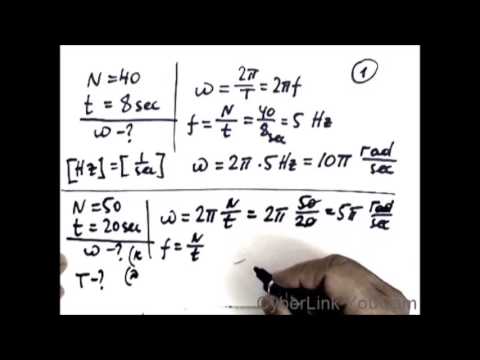 ①
N=40
t = 8 sec
ω-?
ω = 2π/T = 2πf
f = N/t = 40/8sec = 5 Hz
[Hz]=[1/sec]
ω = 2π·5Hz = 10π rad/sec
N=50
t=20sec
ω-?
T-?
ω = 2π N/t = 2π 50/20 = 5π rad/sec
f = N/t
CyberLink YouCam